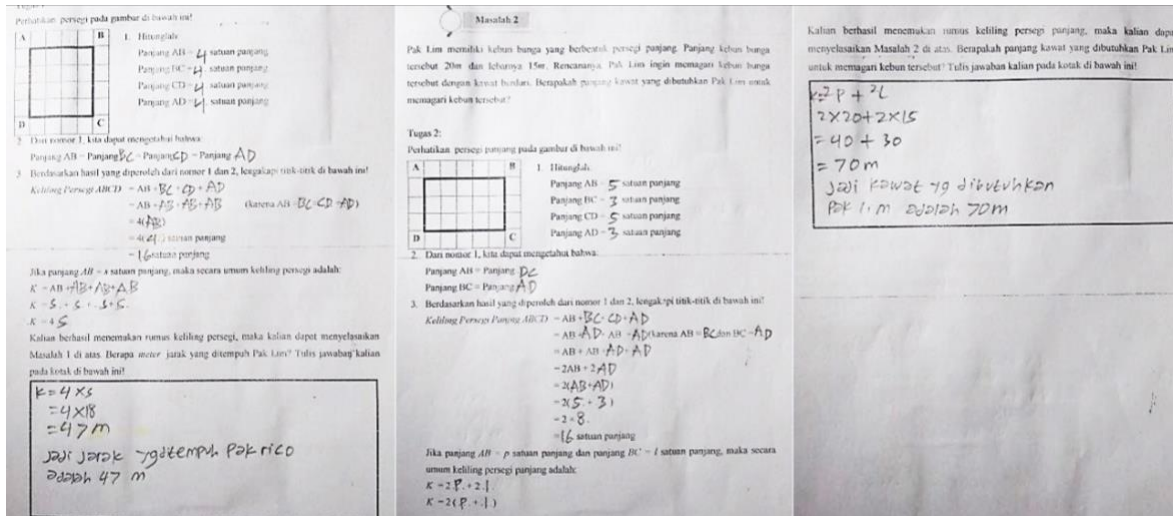 Perhatikan persegi pada gambar di bawah ini!
A B
D C
1. Hitunglah:
Panjang AB = 4 satuan panjang
Panjang BC = 4 satuan panjang
Panjang CD = 4 satuan panjang
Panjang AD = 4 satuan panjang
2. Dari nomor 1, kita dapat mengetahui bahwa:
Panjang AB = Panjang BC = Panjang CD = Panjang AD
3. Berdasarkan hasil yang diperoleh dari nomor 1 dan 2, lengkapi titik-titik di bawah ini!
Keliling Persegi ABCD = AB + BC + CD + AD
= AB + AB + AB + AB (karena AB = BC = CD = AD)
= 4(AB)
= 4(4) satuan panjang
= 16 satuan panjang
Jika panjang AB = s satuan panjang, maka secara umum keliling persegi adalah:
K = AB + AB + AB + AB
K = S + S + S + S
K = 4 S
Kalian berhasil menemukan rumus keliling persegi, maka kalian dapat menyelesaikan
Masalah 1 di atas. Berapa meter jarak yang ditempuh Pak Lim? Tulis jawaban kalian
pada kotak di bawah ini!
K = 4 x s
= 4 x 18
= 47 m
Jadi jarak yg ditempuh Pak rico
adalah 47 m
Masalah 2
Pak Lim memiliki kebun bunga yang berbentuk persegi panjang. Panjang kebun bunga
tersebut 20m dan lebarnya 15m. Rencananya Pak Lim ingin memagari kebun bunga
tersebut dengan kawat berduri. Berapakah panjang kawat yang dibutuhkan Pak Lim untuk
memagari kebun tersebut?
Tugas 2:
Perhatikan persegi panjang pada gambar di bawah ini!
A B
D C
1. Hitunglah:
Panjang AB = 5 satuan panjang
Panjang BC = 3 satuan panjang
Panjang CD = 5 satuan panjang
Panjang AD = 3 satuan panjang
2. Dari nomor 1, kita dapat mengetahui bahwa:
Panjang AB = Panjang DC
Panjang BC = Panjang AD
3. Berdasarkan hasil yang diperoleh dari nomor 1 dan 2, lengkapi titik-titik di bawah ini!
Keliling Persegi Panjang ABCD = AB + BC + CD + AD
= AB + AD + AB + AD (karena AB = BC dan BC = AD)
= AB + AB + AD + AD
= 2AB + 2AD
= 2(AB + AD)
= 2(5 + 3)
= 2 × 8
= 16 satuan panjang
Jika panjang AB = p satuan panjang dan panjang BC = l satuan panjang, maka secara
umum keliling persegi panjang adalah:
K = 2 P + 2 l
K = 2(P + l)
Kalian berhasil menemukan rumus keliling persegi panjang, maka kalian dapa
menyelesaikan Masalah 2 di atas. Berapakah panjang kawat yang dibutuhkan Pak Lim
untuk memagari kebun tersebut? Tulis jawaban kalian pada kotak di bawah ini!
K = 2P + 2L
2 x 20 + 2 x 15
= 40 + 30
= 70 m
Jadi kawat yg dibutuhkan
Pak lim adalah 70m